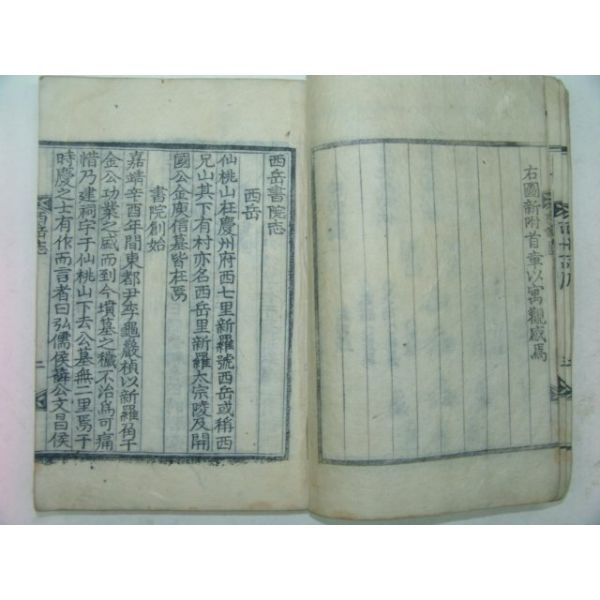 右圖新附首章以寓觀感焉
西岳書院志
西岳
仙桃山在慶州府西七里新羅號西岳或稱西
兄山其下有村亦名西岳里新羅太宗陵及開
國公金庾信墓皆在焉
書院創始
嘉靖辛酉年間東都尹李龜巖楨以新羅角干
金公功業之盛而到今墳墓之穢不治爲可痛
惜乃建祠宇于仙桃山下去公墓無二里焉于
時慶之士有作而言者曰弘儒侯薛公文昌侯
西岳志
二